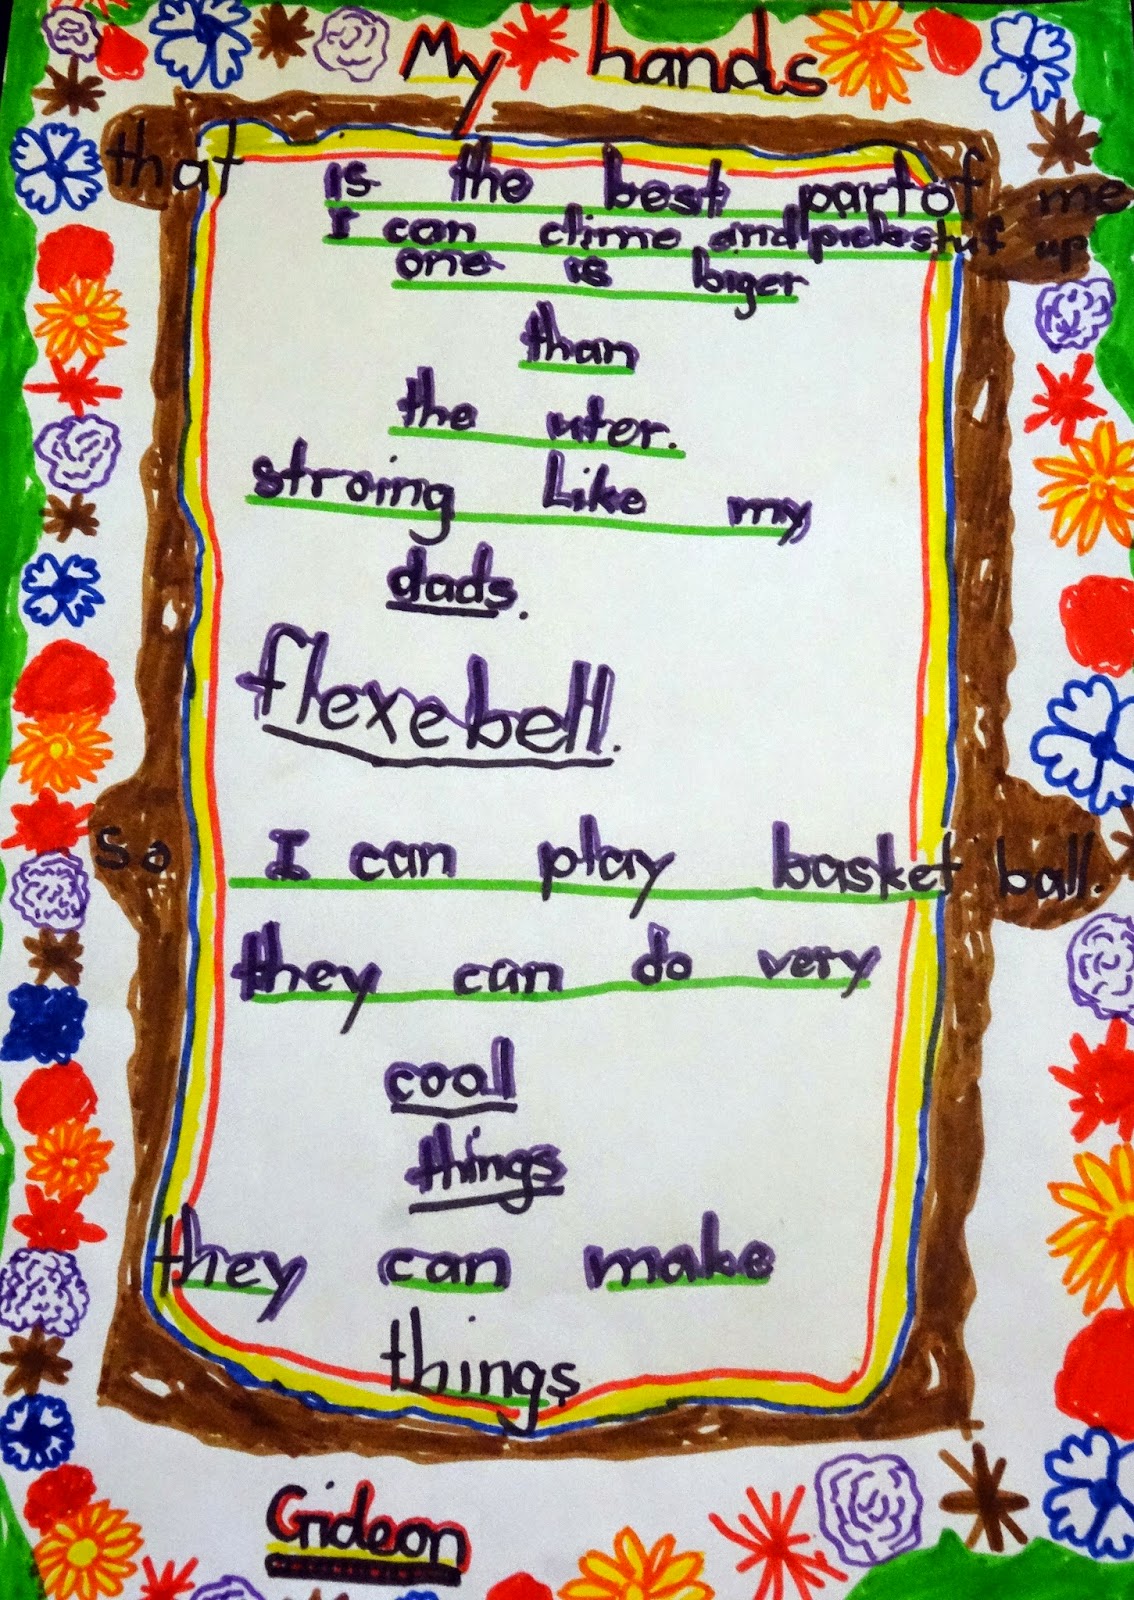 My hands
that is the best part of me
I can clime and pick stuf up
one is biger
than
the uter.
stroing Like my
dads.
flexebell.
so I can play basket ball.
they can do very
cool
things
they can make
things
Gideon